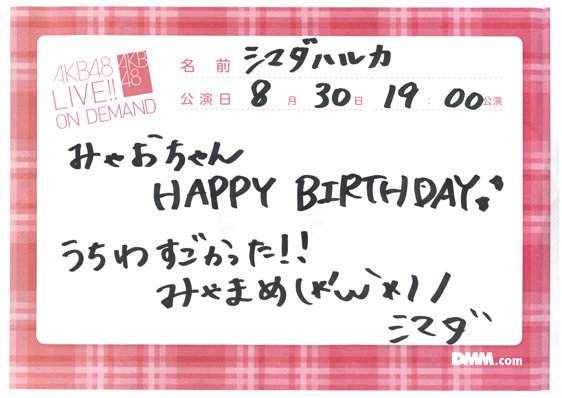 AKB48
LIVE!!
ON DEMAND
AKB
48
名前 シマダハルカ
公演日 8月30日 19:00公演
みゃおちゃん
HAPPY BIRTHDAY
うちわすごかった!!
みゃまめ(*'ω`*)ノ
シマダ
DMM.com